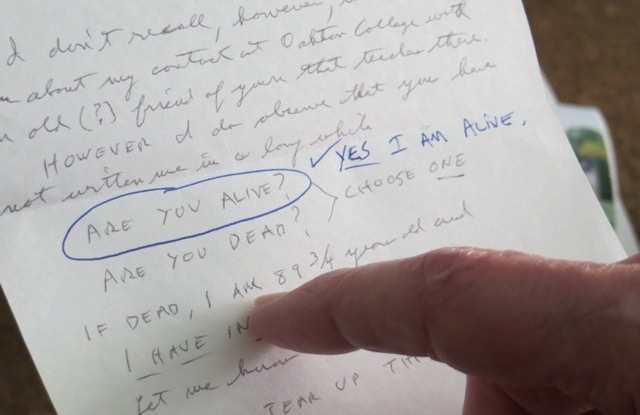 I don't recall, however,
about my contact at Oakton College with
old (?) friend of yours that teaches there.
HOWEVER I do observe that you have
not written me in a long while
✓ YES I AM ALIVE.
ARE YOU ALIVE?
CHOOSE ONE
ARE YOU DEAD?
IF DEAD, I AM 89 3/4 years old and
I HAVE IN
let me know
TEAR UP TH